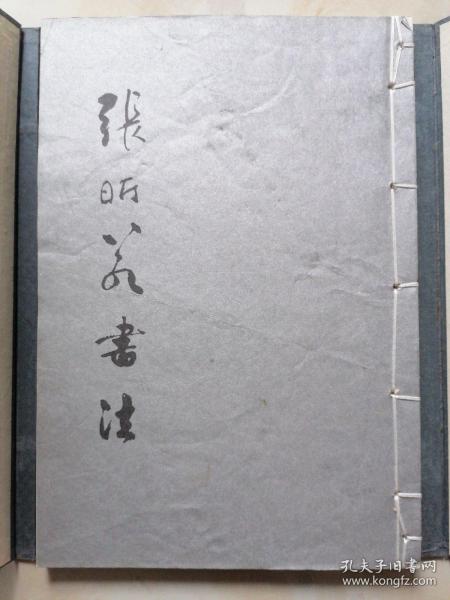 張昕若書法
孔夫子旧书网
www.kongfz.com